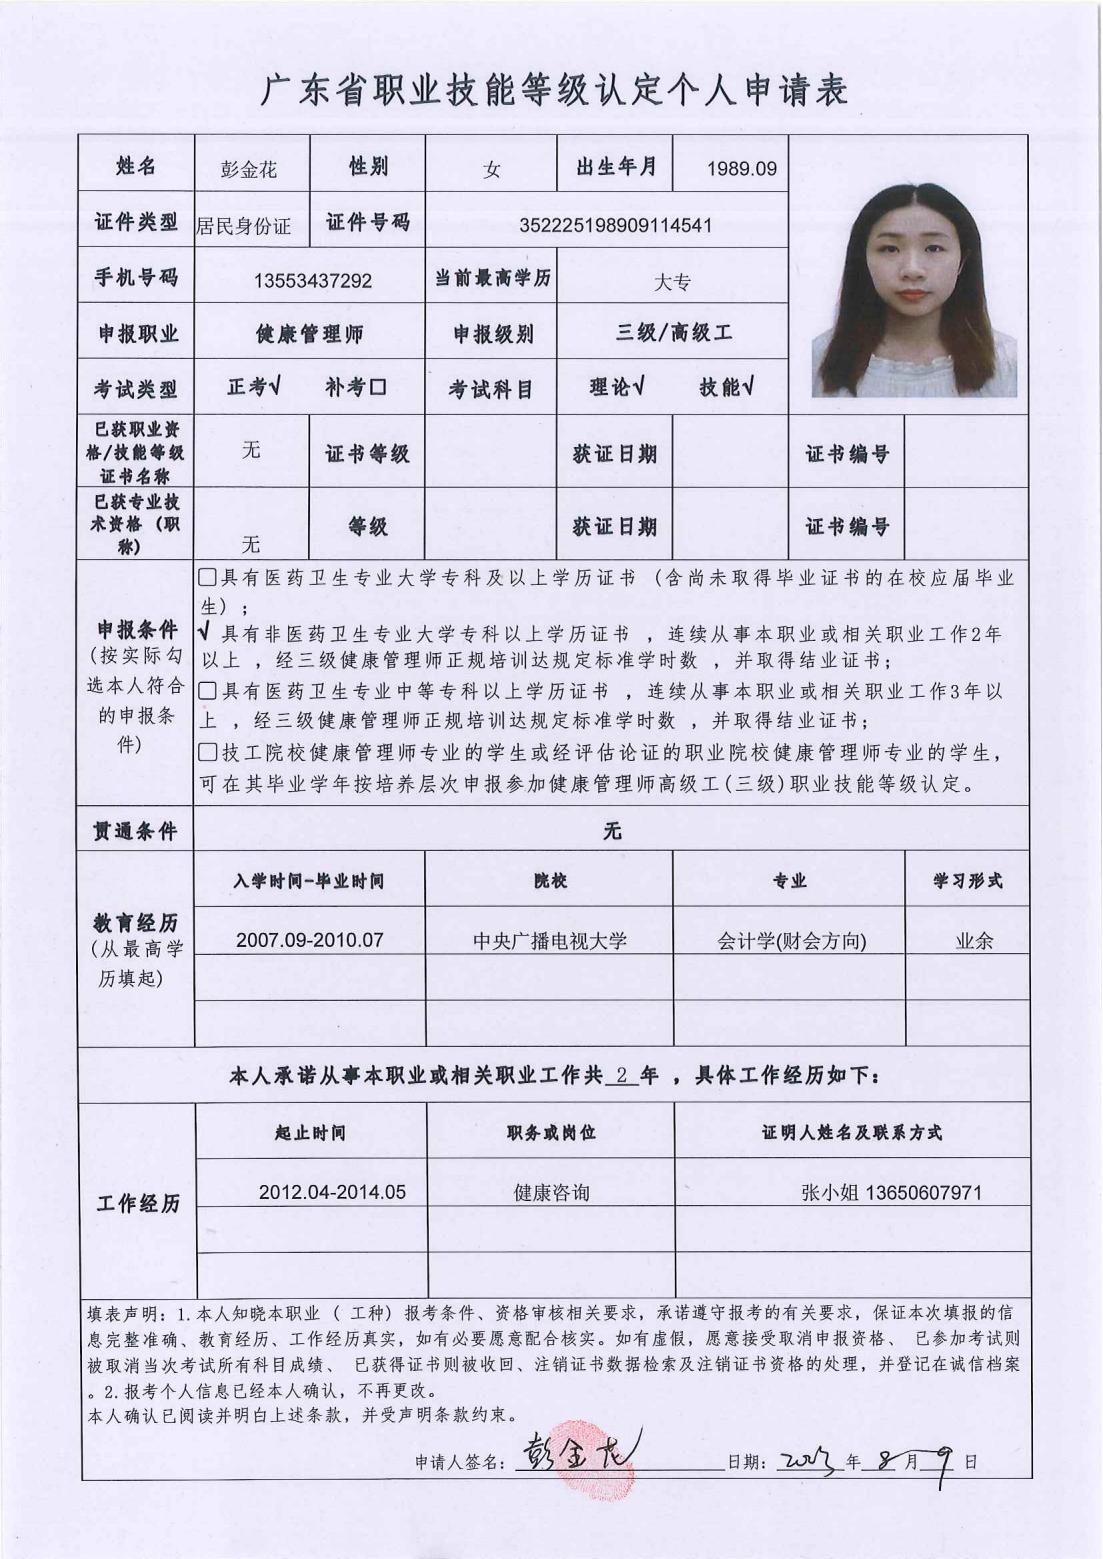 广东省职业技能等级认定个人申请表
姓名 彭金花 性别 女 出生年月 1989.09
证件类型 居民身份证 证件号码 352225198909114541
手机号码 13553437292 当前最高学历 大专
申报职业 健康管理师 申报级别 三级/高级工
考试类型 正考√ 补考□ 考试科目 理论√ 技能√
已获职业资
格/技能等级
证书名称
无 证书等级 获证日期 证书编号
已获专业技
术资格（职
称）
无 等级 获证日期 证书编号
申报条件
(按实际勾
选本人符合
的申报条
件)
□具有医药卫生专业大学专科及以上学历证书（含尚未取得毕业证书的在校应届毕业
生）；
√ 具有非医药卫生专业大学专科以上学历证书 ，连续从事本职业或相关职业工作2年
以上 ，经三级健康管理师正规培训达规定标准学时数 ，并取得结业证书；
□具有医药卫生专业中等专科以上学历证书 ，连续从事本职业或相关职业工作3年以
上 ，经三级健康管理师正规培训达规定标准学时数 ，并取得结业证书；
□技工院校健康管理师专业的学生或经评估论证的职业院校健康管理师专业的学生，
可在其毕业学年按培养层次申报参加健康管理师高级工(三级)职业技能等级认定。
贯通条件 无
教育经历
(从最高学
历填起)
入学时间-毕业时间 院校 专业 学习形式
2007.09-2010.07 中央广播电视大学 会计学(财会方向) 业余
本人承诺从事本职业或相关职业工作共 2 年 ，具体工作经历如下：
工作经历
起止时间 职务或岗位 证明人姓名及联系方式
2012.04-2014.05 健康咨询 张小姐 13650607971
填表声明：1.本人知晓本职业 （ 工种）报考条件、资格审核相关要求，承诺遵守报考的有关要求，保证本次填报的信
息完整准确、教育经历、工作经历真实，如有必要愿意配合核实。如有虚假，愿意接受取消申报资格、 已参加考试则
被取消当次考试所有科目成绩、 已获得证书则被收回、注销证书数据检索及注销证书资格的处理，并登记在诚信档案
。2.报考个人信息已经本人确认，不再更改。
本人确认已阅读并明白上述条款，并受声明条款约束。
申请人签名： 彭金花 日期： 2023 年 8 月 9 日